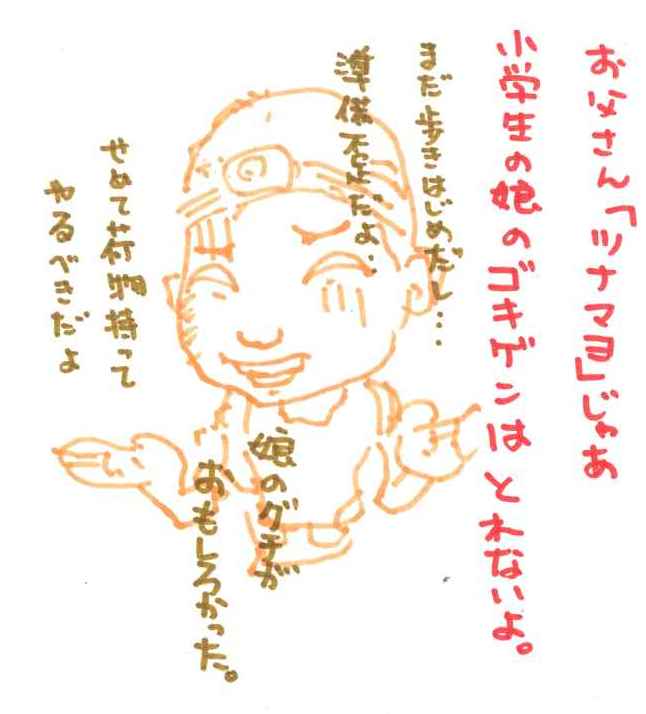 お父さん「ツナマヨ」じゃあ
小学生の娘のゴキゲンはとれないよ。
まだ歩きはじめだし…
準備不足だよ…
せめて荷物持って
やるべきだよ
娘のグチが
おもしろかった。